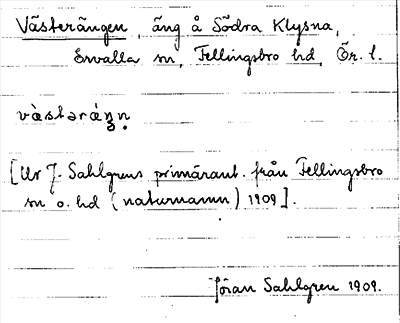 Västerängen, äng å Södra Klysna,
Ervalla sn, Fellingsbro hd, Ör. l.
[Ur J. Sahlgrens primärant. från Fellingsbro
sn o. hd (naturnamn) 1909].
Jöran Sahlgren 1909.